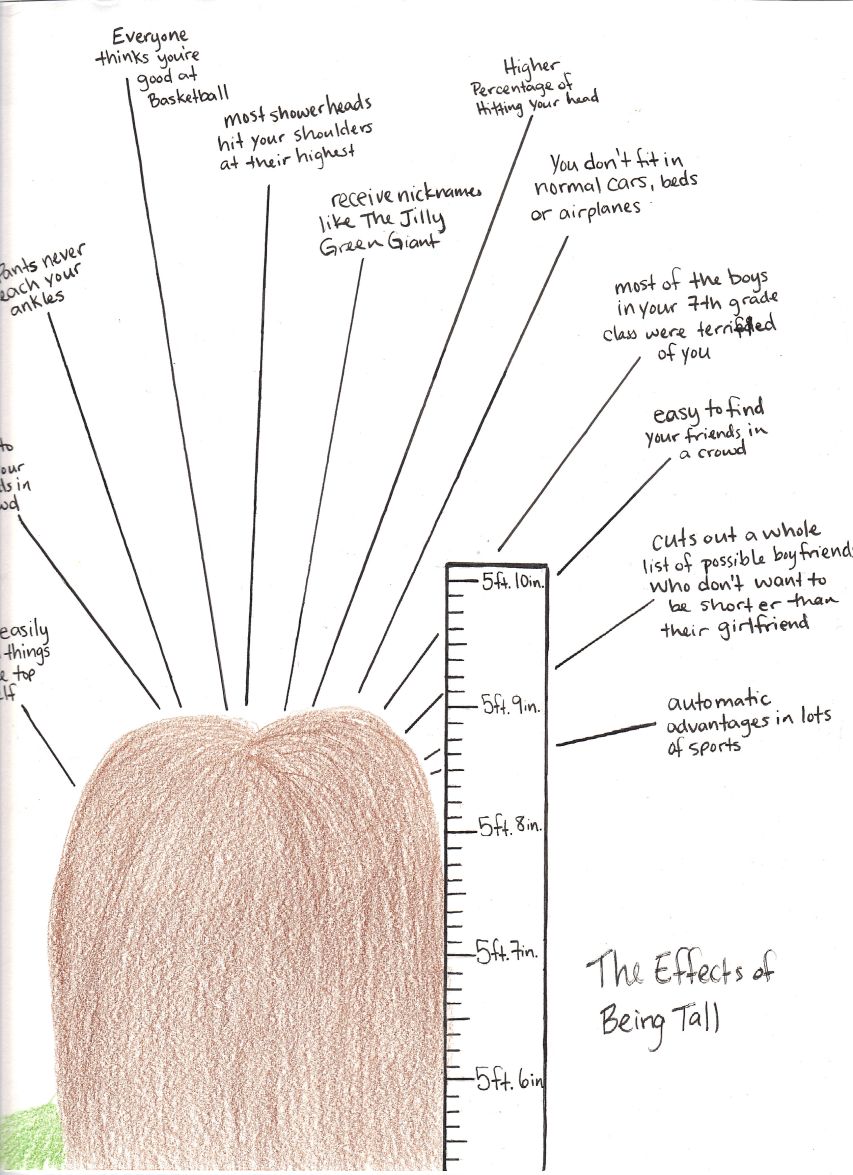 Everyone
thinks you're
good at
Basketball
most showerheads
hit your shoulders
at their highest
receive nicknames
like The Jilly
Green Giant
Higher
Percentage of
Hitting your head
You don't fit in
normal cars, beds
or airplanes
most of the boys
in your 7th grade
class were terrified
of you
easy to find
your friends in
a crowd
cuts out a whole
list of possible boyfriends
who don't want to
be short er than
their girlfriend
automatic
advantages in lots
of sports
Pants never
each your
ankles
to
our
ds in
wd
easily
things
e top
lf
5ft. 10in.
5ft. 9in.
5ft. 8in.
5ft. 7in.
5ft. 6in
The Effects of
Being Tall